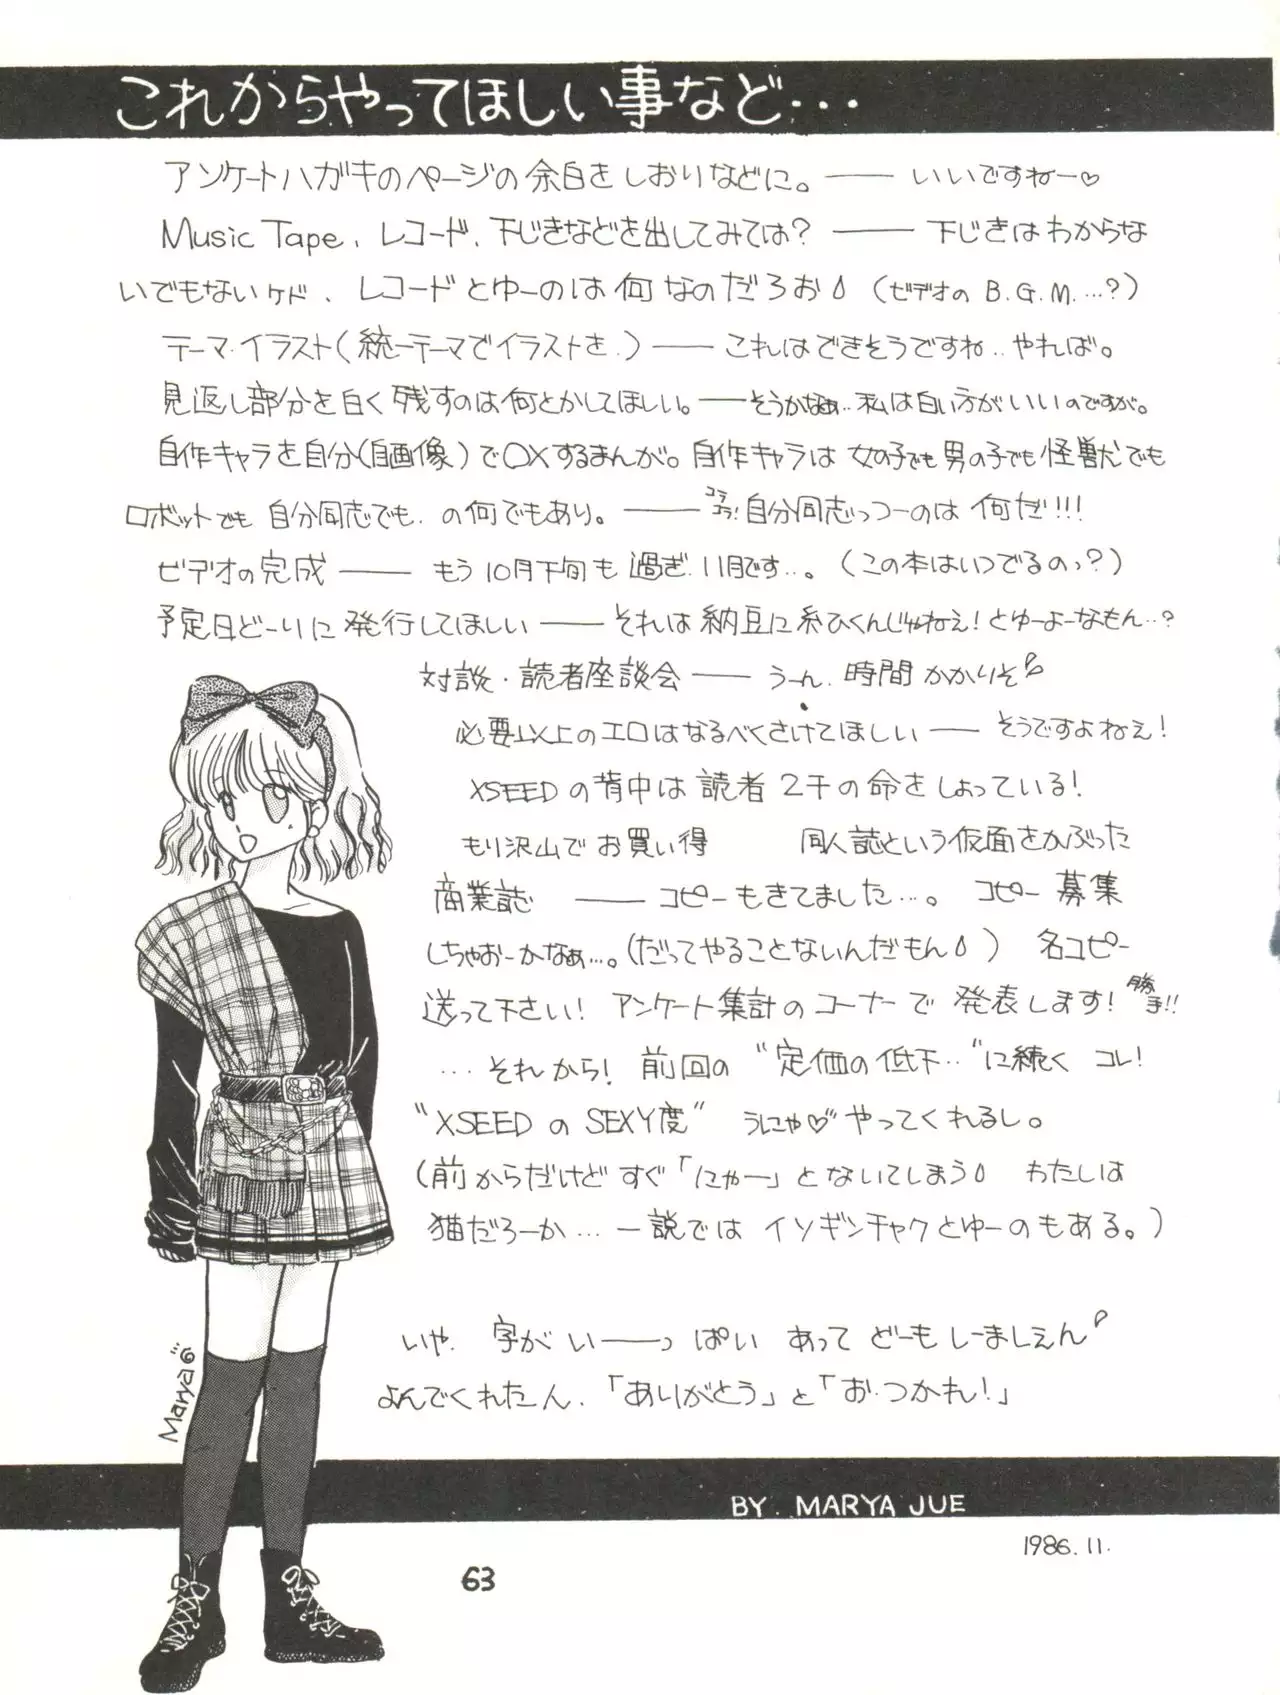 これからやってほしい事など・・・
アンケートハガキのページの余白をしおりなどに。—— いいですねー♡
Music Tape、レコード、下じきなどを出してみては? —— 下じきはわからな
いでもないケド、レコードとゆーのは何なのだろお (ビデオの B.G.M.…?)
テーマ・イラスト(統一テーマでイラストを..) —— これはできそうですね..やれば。
見返し部分を白く残すのは何とかしてほしい。——そうかなぁ..私は白い方がいいのですが。
自作キャラを自分(自画像)で〇×するまんが。自作キャラは女の子でも男の子でも怪獣でも
ロボットでも自分同志でも、の何でもあり。—— コラコラ!自分同志っつーのは何だ!!!
ビデオの完成 —— もう10月下旬も過ぎ、11月です…。(この本はいつでるのっ?)
予定日どーりに発行してほしい —— それは納豆に糸ひくんじゃねえ!とゆーよーなもん…?
対談・読者座談会 —— うーん、時間かかりそ
必要以上のエロはなるべくさけてほしい —— そうですよねぇ!
XSEEDの背中は読者2千の命をしょっている!
もり沢山でお買い得 同人誌という仮面をかぶった
商業誌 —— コピーもきてました…。 コピー募集
しちゃおーかなぁ…。(だってやることないんだもん) 名コピー
送って下さい! アンケート集計のコーナーで発表します! 勝手!!
…それから! 前回の"定価の低下…"に続くコレ!
"XSEEDのSEXY度" うにゃ♡やってくれるし。
(前からだけどすぐ「にゃー」とないてしまう わたしは
猫だろーか…一説ではイソギンチャクとゆーのもある。)
いや、字がい——っぱいあってどーもしーましぇん
よんでくれたん、「ありがとう」と「お・つかれ!」
Marya
BY. MARYA JUE
1986.11.
63